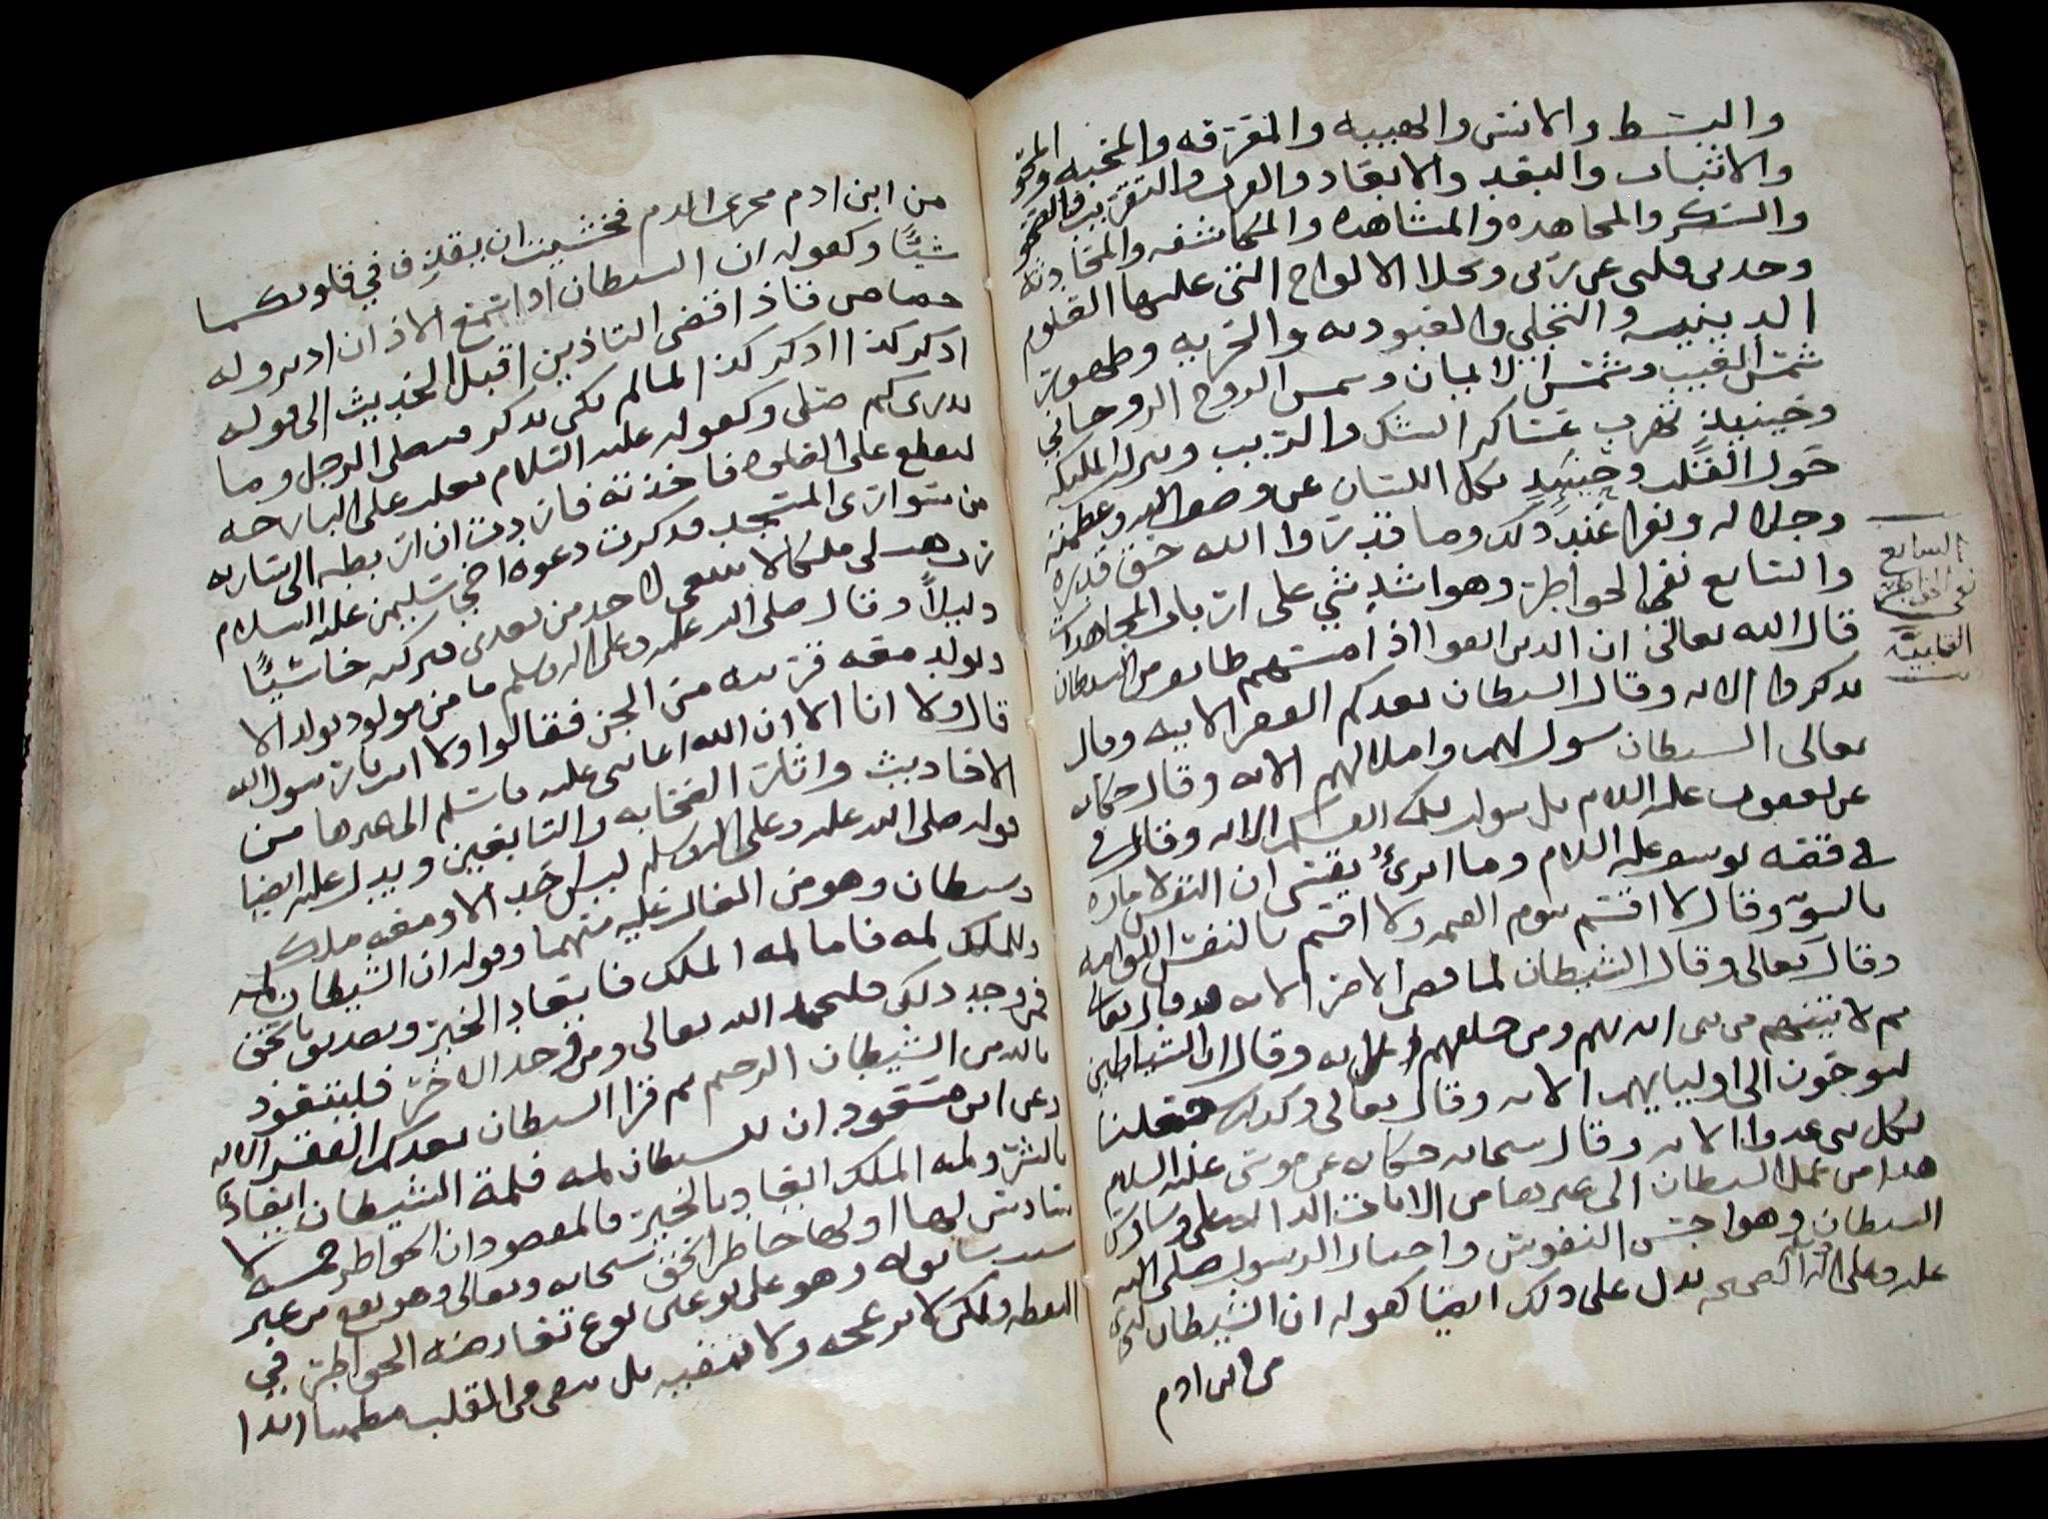 والبسط والانس والهيبه والتفرقه والمحبه والمحو
والاثبات والبعد والابعاد والقرب والتقريب والصحو
والسكر والمجاهده والمشاهده والمكاشفه والمحادثه
وحدثني قلبي عن ربي وتجلا الالواح التي عليها العلوم
الدينيه والتجلي والعبوديه والحريه وظهور
شمس الغيب وشمس الايمان وشمس الروح الروحاني
وحينيذ تهرب عساكر الشك والريب وتنزل الملائكه
حول القلب وحينيذ يكل اللسان عن وصف الله وعظمته
وجلاله ونقرا عند ذلك وما قدروا الله حق قدره
والسابع نفي الخواطر وهو اشد شي على ارباب المجاهدات
قال الله تعالى ان الذين اتقوا اذا مسهم طايف من الشيطان
تذكروا الايه وقال الشيطان يعدكم الفقر الايه وقال
تعالى الشيطان سول لهم واملا لهم الايه وقال حكايه
عن يعقوب عليه السلام بل سولت لكم انفسكم الايه وقال
في قصه يوسف عليه السلام وما ابرئ نفسي ان النفس لاماره
بالسوء وقال لا اقسم بيوم القيمه ولا اقسم بالنفس اللوامه
وقال تعالى وقال الشيطان لما قضي الامر الايه وقال تعالى
ثم لاتينهم من بين ايديهم ومن خلفهم الايه وقال ان الشياطين
ليوحون الى اوليايهم الايه وقال تعالى وكذلك جعلنا
لكل نبي عدوا الايه وقال سبحانه حكايه عن موسى عليه السلام
هذا من عمل الشيطان الى غير هذا من الايات الداله على وساوس
الشيطان وهواجس النفوس واخبار الرسول صلى الله
عليه وعلى اله الصحيحه تدل على ذلك ايضا كقوله ان الشيطان ليجري
من ابن ادم
السابع
نفي الخواطر
من ابن ادم مجرى الدم فخشيت ان يقذف في قلوبكما
شيئًا وكقوله ان الشيطان اذا سمع الاذان ادبر وله
حصاص فاذا قضي التاذين اقبل الحديث الى قوله
اذكر كذا اذكر كذا لما لم يكن يذكر فيصلى الرجل وما
يدري كم صلى وكقوله عليه السلام تفلت علي البارحه
ليقطع علي الصلوه فاخذته فاردت ان اربطه الى ساريه
من سواري المسجد فذكرت دعوه اخي سليمن عليه السلام
رب هب لي ملكا لا ينبغي لاحد من بعدي فتركته خاسيًا
ذليلاً وقال صلى الله عليه وعلى اله وسلم ما من مولود يولد الا
ويولد معه قرينه من الجن فقالوا ولا انت يا رسول الله
قال ولا انا الا ان الله اعانني عليه فاسلم الى غيرها من
الاحاديث واثار الصحابه والتابعين ويدل عليه ايضا
قوله صلى الله عليه وعلى اله وسلم ليس احد الا ومعه ملك
وشيطان وهو من الغالب عليه منهما وقوله ان للشيطان لمه
وللملك لمه فاما لمه الملك فايعاد بالخير وتصديق بالحق
فمن وجد ذلك فليحمد الله تعالى ومن وجد الاخرى فليتعوذ
بالله من الشيطان الرجيم ثم قرا الشيطان يعدكم الفقر الايه
وعن ابن مسعود ان للشيطان لمه فلمة الشيطان ايعاد
بالشر ولمه الملك ايعاد بالخير والمقصود ان الخواطر خمسه لا
سادس لها اولها خاطر الحق سبحانه وتعالى وهو يقع من غير
سبب سابق له وهو على نوعين نوع تعارضه الخواطر في
اليقظه ولكن لا تزعجه ولا تنفيه بل يبقى في القلب مطمينا ابدا